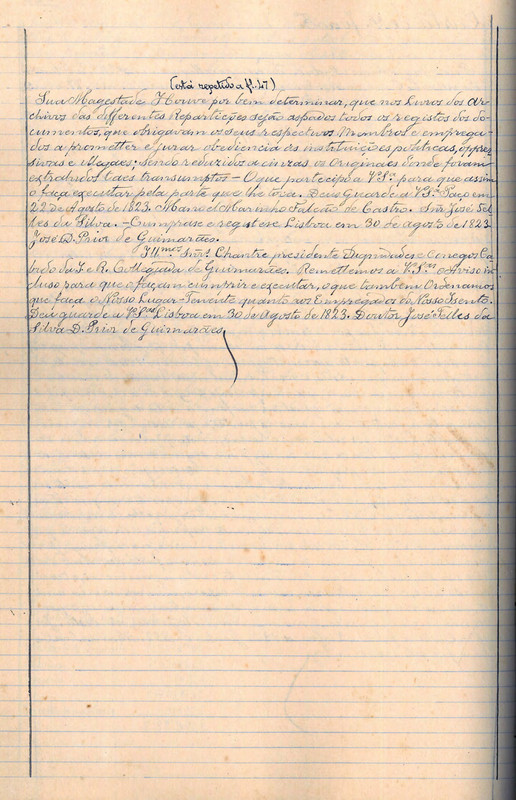 (está repetido a fl. 47)
Sua Magestade Houve por bem determinar, que nos Livros dos Ar-
chivos das differentes Repartições sejão aspados todos os registos dos do-
cumentos, que obrigavam os seus respectivos Membros e emprega-
dos a prometter e jurar obediencia ás instituições politicas, oppres-
sivas e illegaes; sendo reduzidos a cinzas, os Originaes d'onde foram
extrahidos taes transumptos – O que participo a V. Sª. para que assim
o faça executar pela parte que lhe toca. Deus Guarde a V. Sª. Paço em
22 de Agosto de 1823. Manoel Marinho Falcão de Castro. Snr. José Tel-
les da Silva. – Cumpra-se e registe-se Lisboa em 30 de agosto de 1823
José D. Prior de Guimarães.
Illmos. Snrs. Chantre presidente Dignidades e Conegos Ca-
bido da I. e R. Collegiada de Guimarães. Remettemos a V. Sras o Aviso in-
cluso para que o façam cumprir e executar, o que tambem Ordenamos
que faça o Nosso Lugar-Tenente quanto aos Empregados do Nosso Isento.
Deus guarde a V. Sras Lisboa em 30 de Agosto de 1823. Doutor José Telles da
Silva D. Prior de Guimarães